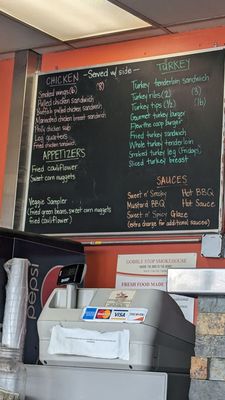 CHICKEN - Served w/ side -
Smoked wings (6) (8)
Pulled chicken Sandwich
Buffalo pulled chicken Sandwich
Marinated chicken breast sandwich
Philly chicken sub
Leg quarters
Fried chicken Sandwich
APPETIZERS
Fried cauliflower
Sweet corn nuggets
Veggie Sampler
(fried green beans, sweet corn nuggets
fried cauliflower)
TURKEY
Turkey tenderloin sandwich
Turkey ribs (2) (3)
Turkey tips (1/2) (1lb)
Gourmet turkey burger
Flew the coop burger
Fried turkey Sandwich
Whole turkey tenderloin
Smoked turkey leg (Fridays)
Sliced turkey breast
SAUCES
Sweet n' Smoky Hot BBQ
Mustard BBQ Hot Sauce
Sweet n' Spicy Glaze
(extra charge for additional sauces)
pepsi
GOBBLE STOP SMOKEHOUSE
FRESH MADE
VISA